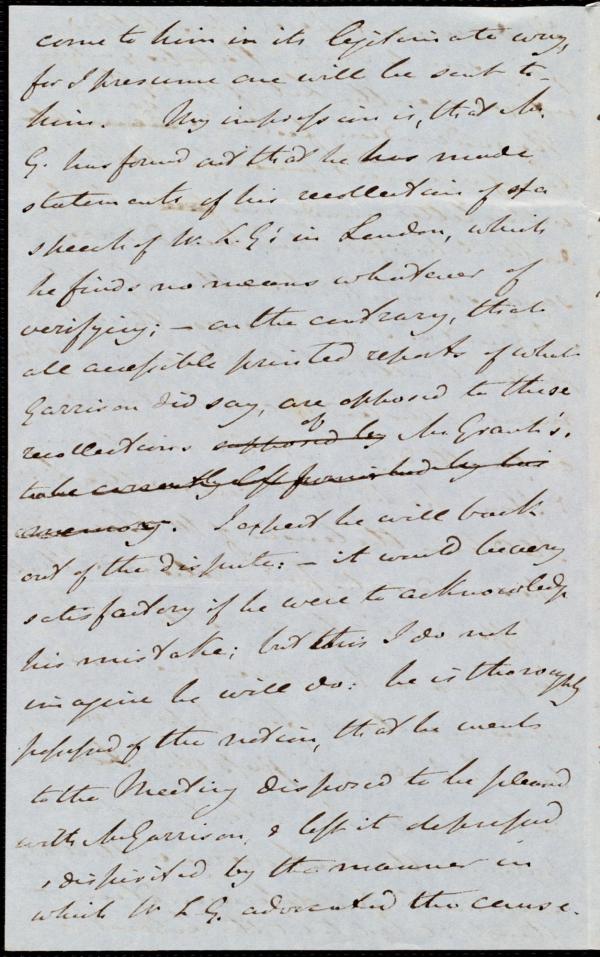 come to him in its legitimate way,
for I presume one will be sent to
him. My impression is, that Mr.
G. has found out that he has made
statements of his recollection of of a
speech of W. L. G's in London, which
he finds no means whatever of
verifying; — on the contrary, that
all accessible printed reports of what
Garrison did say, are opposed to these
recollections supposed by of Mr. Grant's.
to be correctly furnished by his
memory. I expect he will back
out of the dispute: — it would be very
satisfactory if he were to acknowledge
his mistake; but this I do not
imagine he will do: he is thoroughly
possessed of the notion, that he went
to the Meeting disposed to be pleased
with Mr Garrison, & left it depressed
& dispirited by the manner in
which W. L. G. advocated the cause.